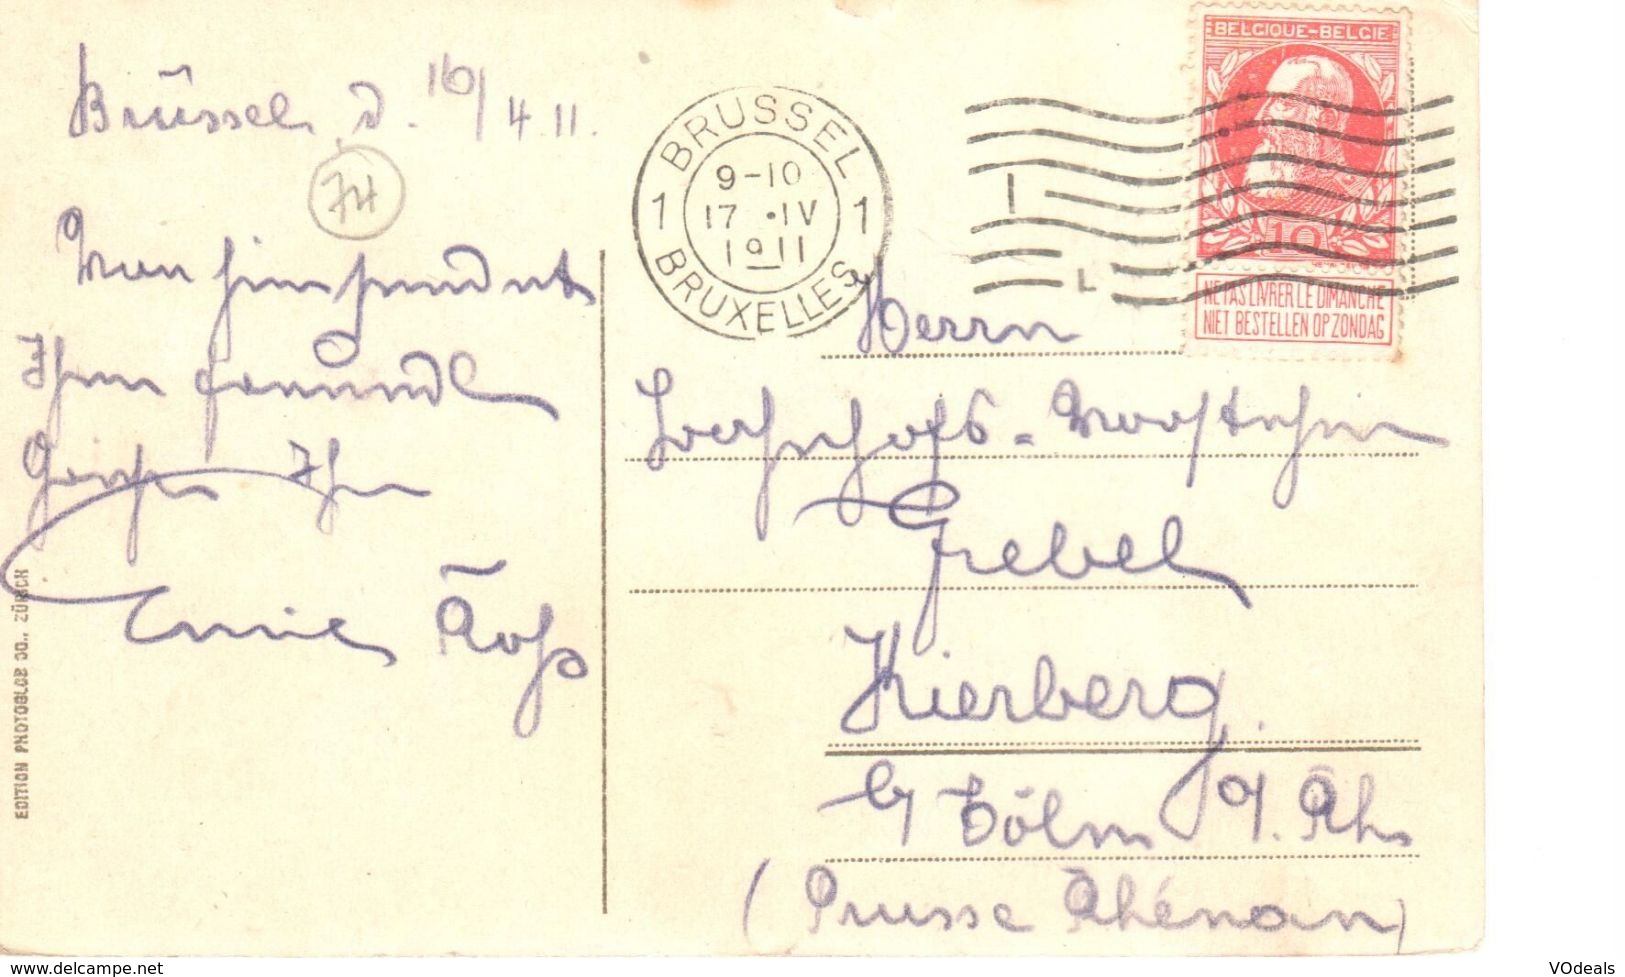 Brüssel, d. 16/4 11.
74
Von hier sendet
Ihnen freundl
Grüße Ihr
EDITION PHOTOGLOB CO., ZÜRICH
BRUSSEL
1 9-10 1
17 .IV
1911
BRUXELLES
BELGIQUE-BELGIE
10
NE PAS LIVRER LE DIMANCHE
NIET BESTELLEN OP ZONDAG
Herrn
Bahnhofs-Vorsteher
Grebel
Kierberg
b/ Cöln a/. Rh.
(Prusse Rhénan)
www.delcampe.net
VOdeals